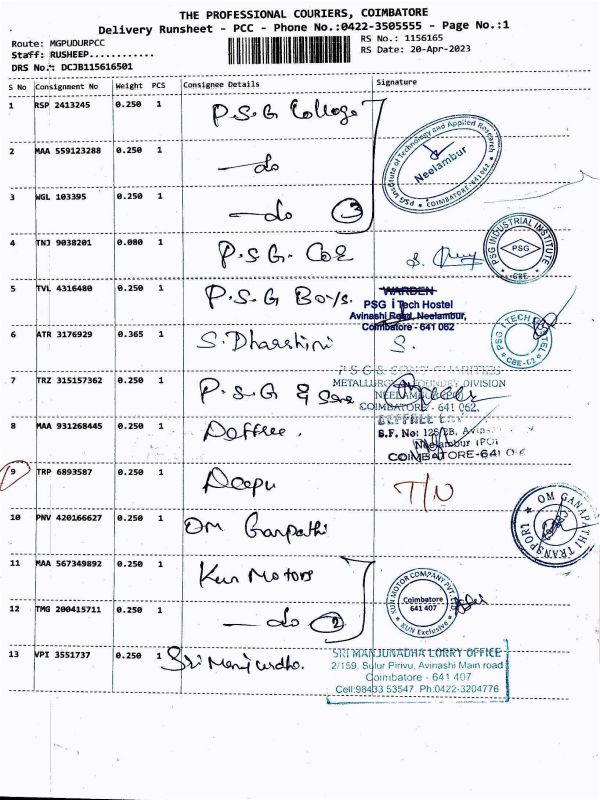 THE PROFESSIONAL COURIERS, COIMBATORE
Delivery Runsheet - PCC - Phone No.:0422-3505555 - Page No.:1
Route: MGPUDURPCC
RS No.: 1156165
Staff: RUSHEEP............
RS Date: 20-Apr-2023
DRS No.: DCJB115616501
S No Consignment No Weight PCS Consignee Details Signature
1 RSP 2413245 0.250 1 P.S.G College
2 MAA 559123288 0.250 1 —do
PSG Institute of Technology and Applied Research
Neelambur
COIMBATORE-641 062
3 WGL 103395 0.250 1 —do 3
4 TNJ 9038201 0.080 1 P.S.G. CoE
PSG INDUSTRIAL INSTITUTE
PSG
CBE
5 TVL 4316480 0.250 1 P.S.G Boys.
WARDEN
PSG iTech Hostel
Avinashi Road, Neelambur,
Coimbatore - 641 062
6 ATR 3176929 0.365 1 S. Dharshini S.
PSG iTECH HOSTEL
CBE-62
7 TRZ 315157362 0.250 1 P.S.G & Sons
P S G & SONS CHARITIES
METALLURGY & FOUNDRY DIVISION
NEELAMBUR (PO)
COIMBATORE - 641 062.
8 MAA 931268445 0.250 1
S.F. No: 125/2B,
Neelambur (PO)
COIMBATORE-641
9 TRP 6893587 0.250 1 Deepu T/N
10 PNV 420166627 0.250 1 Om Ganpathi
OM GANAPATHI TRANSPORT
11 MAA 567349892 0.250 1 Kun Motors
KUN MOTOR COMPANY PVT. LTD
Coimbatore
641 407
KUN Exclusive
12 TMG 200415711 0.250 1 —do 2
13 VPI 3551737 0.250 1 Sri Manjundha.
SRI MANJUNADHA LORRY OFFICE
2/159, Sulur Pirivu, Avinashi Main road
Coimbatore - 641 407
Cell:98433 53547. Ph:0422-3204776